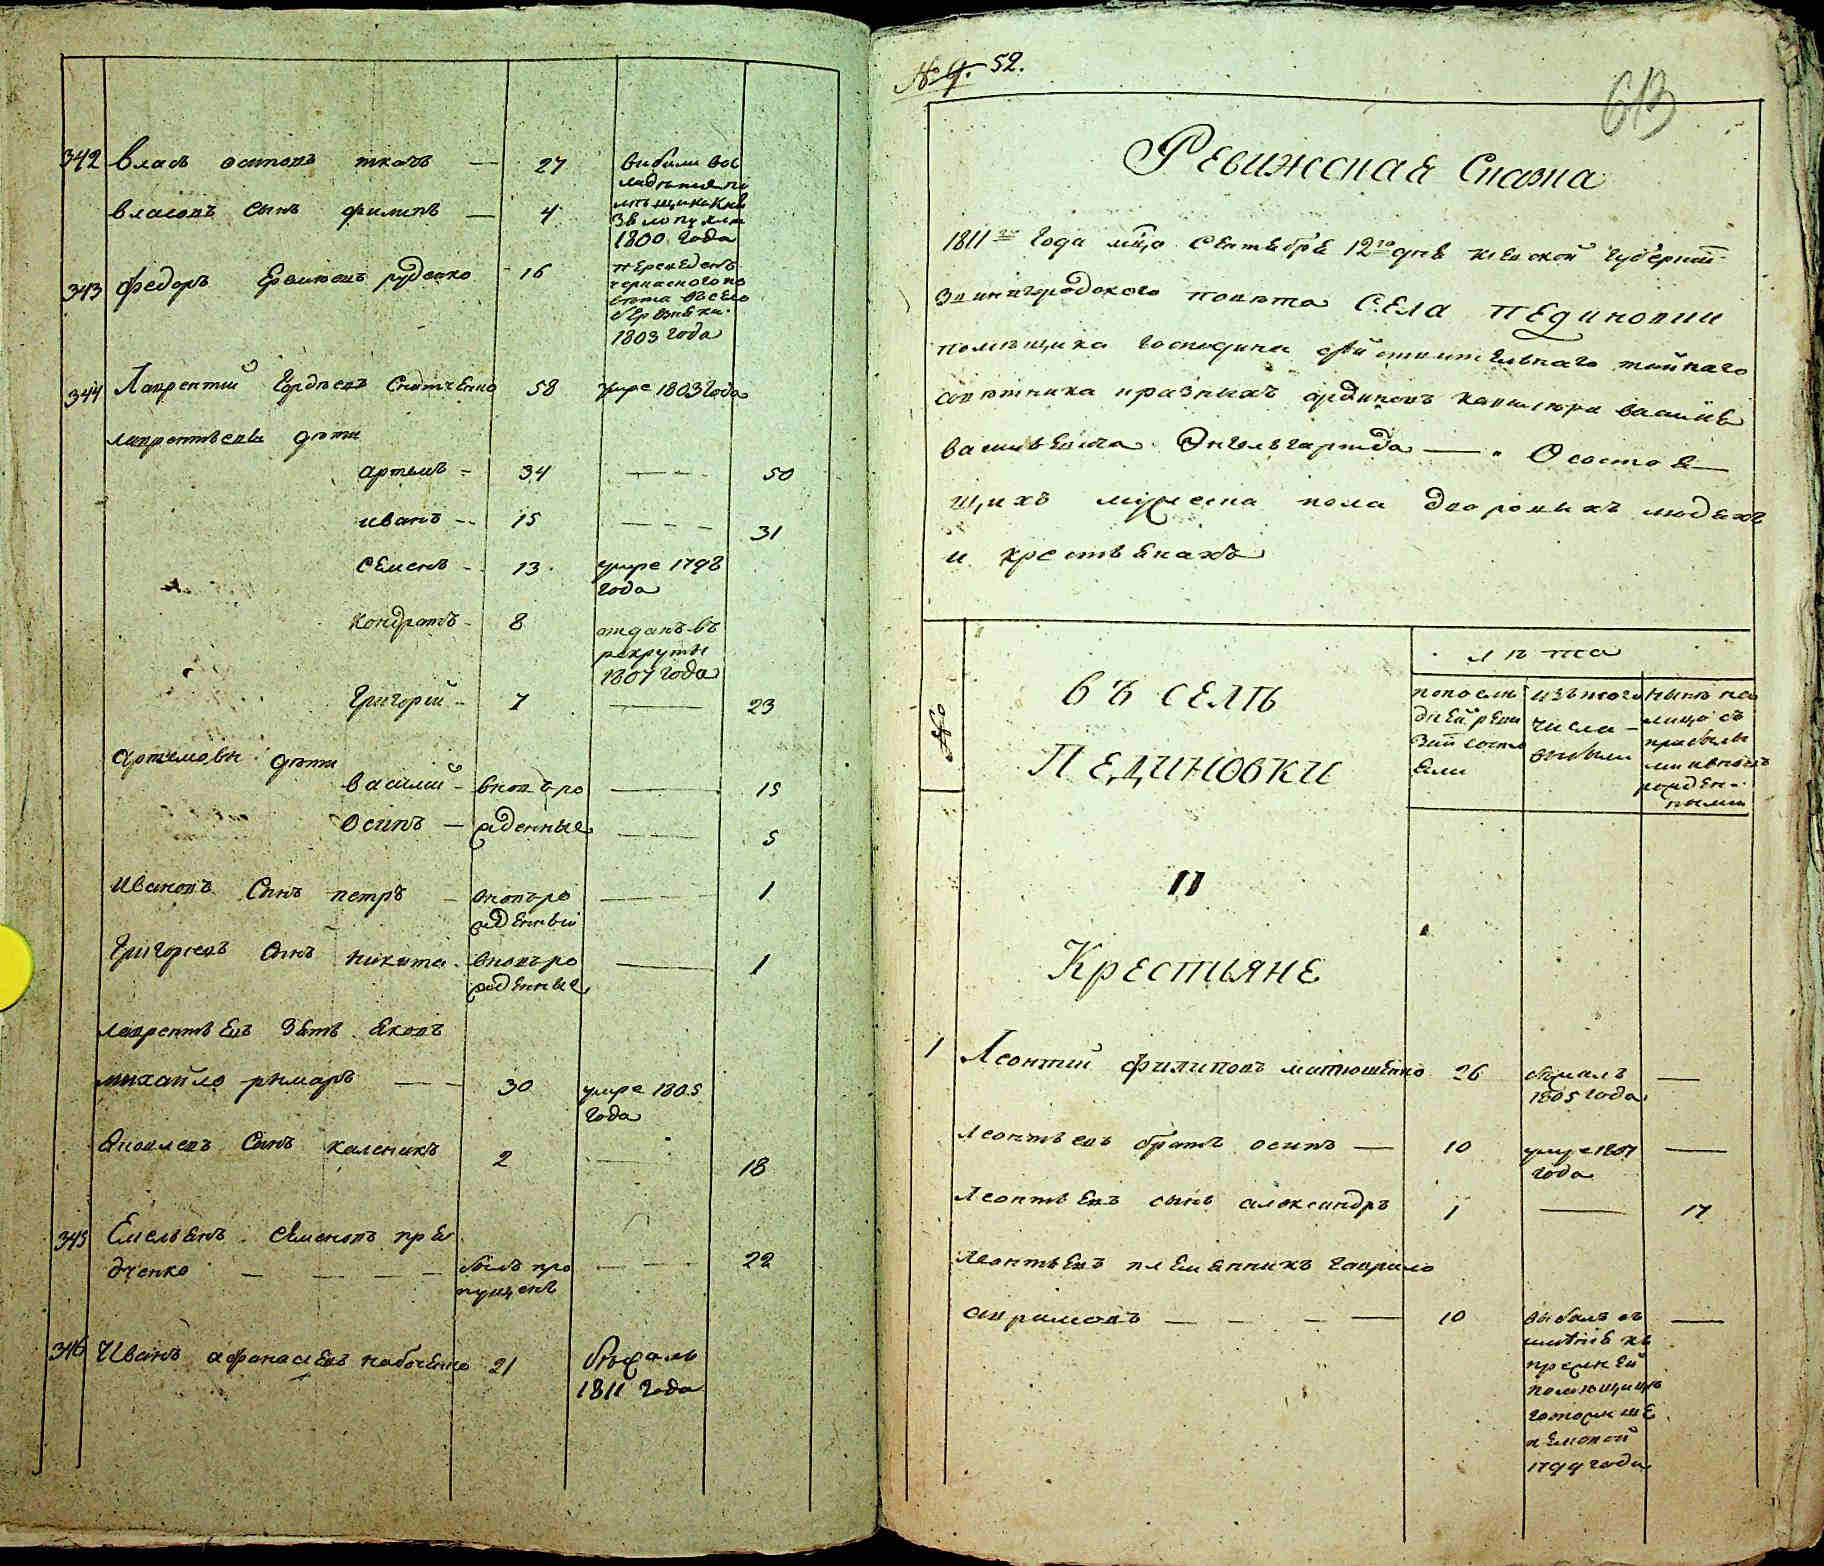 342 Власъ остаповъ ткачъ — 27
выбыли во
владение по
мѣщика Кня
зя лопухина
1800 года
власовъ сынъ филипъ — 4
343 Федоръ Ермиовъ руденко 16
переведенъ
черкаского по
вѣта въ село
березняки
1803 года
344 Лаврентий Гордѣевъ Снитченко 58 умре 1803 года
лаврентѣевы дѣти
артемъ - 34 — — 50
иванъ - 15 — — — 31
Семенъ - 13 умре 1798
года
кондратъ - 8 отданъ въ
рекруты
1807 года
Григорий - 7 — 23
Артемовы дѣти
василий - вновь ро — 15
Осипъ — жденные — 5
Ивановъ Сынъ петръ - вновь ро — 1
жденный
Григориевъ Сынъ никита - вновь ро — 1
жденные
лаврентѣевъ зять яковъ
михайло рымаръ — 30 умре 1805
года
Яковлевъ Сынъ каленикъ 2 — 18
345 Емельянъ Семеновъ пре
дченко — — — — былъ про — — 22
пущенъ
346 Иванъ афанасиевъ набоченко 21 бѣжалъ
1811 года
№ 4. 52.
613
Ревижская Скаска
1811го Года мца Сентября 12го дня киевской Губернии
Звенигородского повѣта СЕЛА ПЕдиновки
помѣщика господина действительнаго тайнаго
совѣтника и разныхъ ординовъ кавалера василия
васильевича Энгельгартда — О состоя—
щихъ мужеска пола дворовыхъ людяхъ
и крестьянахъ
№
ВЪ СЕЛѢ
ПЕДИНОВКИ
лѣта
по послѣ
дней реви
зии состо
яли
изъ того
числа
выбыли
нынѣ на
лицо съ
прибылы
ми и вновь
рожден-
ными
Крестьяне
1 Леонтий филиповъ матюшенко 26 бѣжалъ —
1805 года
Леонтьевъ братъ осипъ — 10 умре 1807 —
года
Леонтьевъ сынъ александръ 1 — 17
Леонтьевъ племянникъ гаврило
аврамовъ — — — — 10 выбылъ въ —
имѣние къ
прежней
помѣщицѣ
1799 года